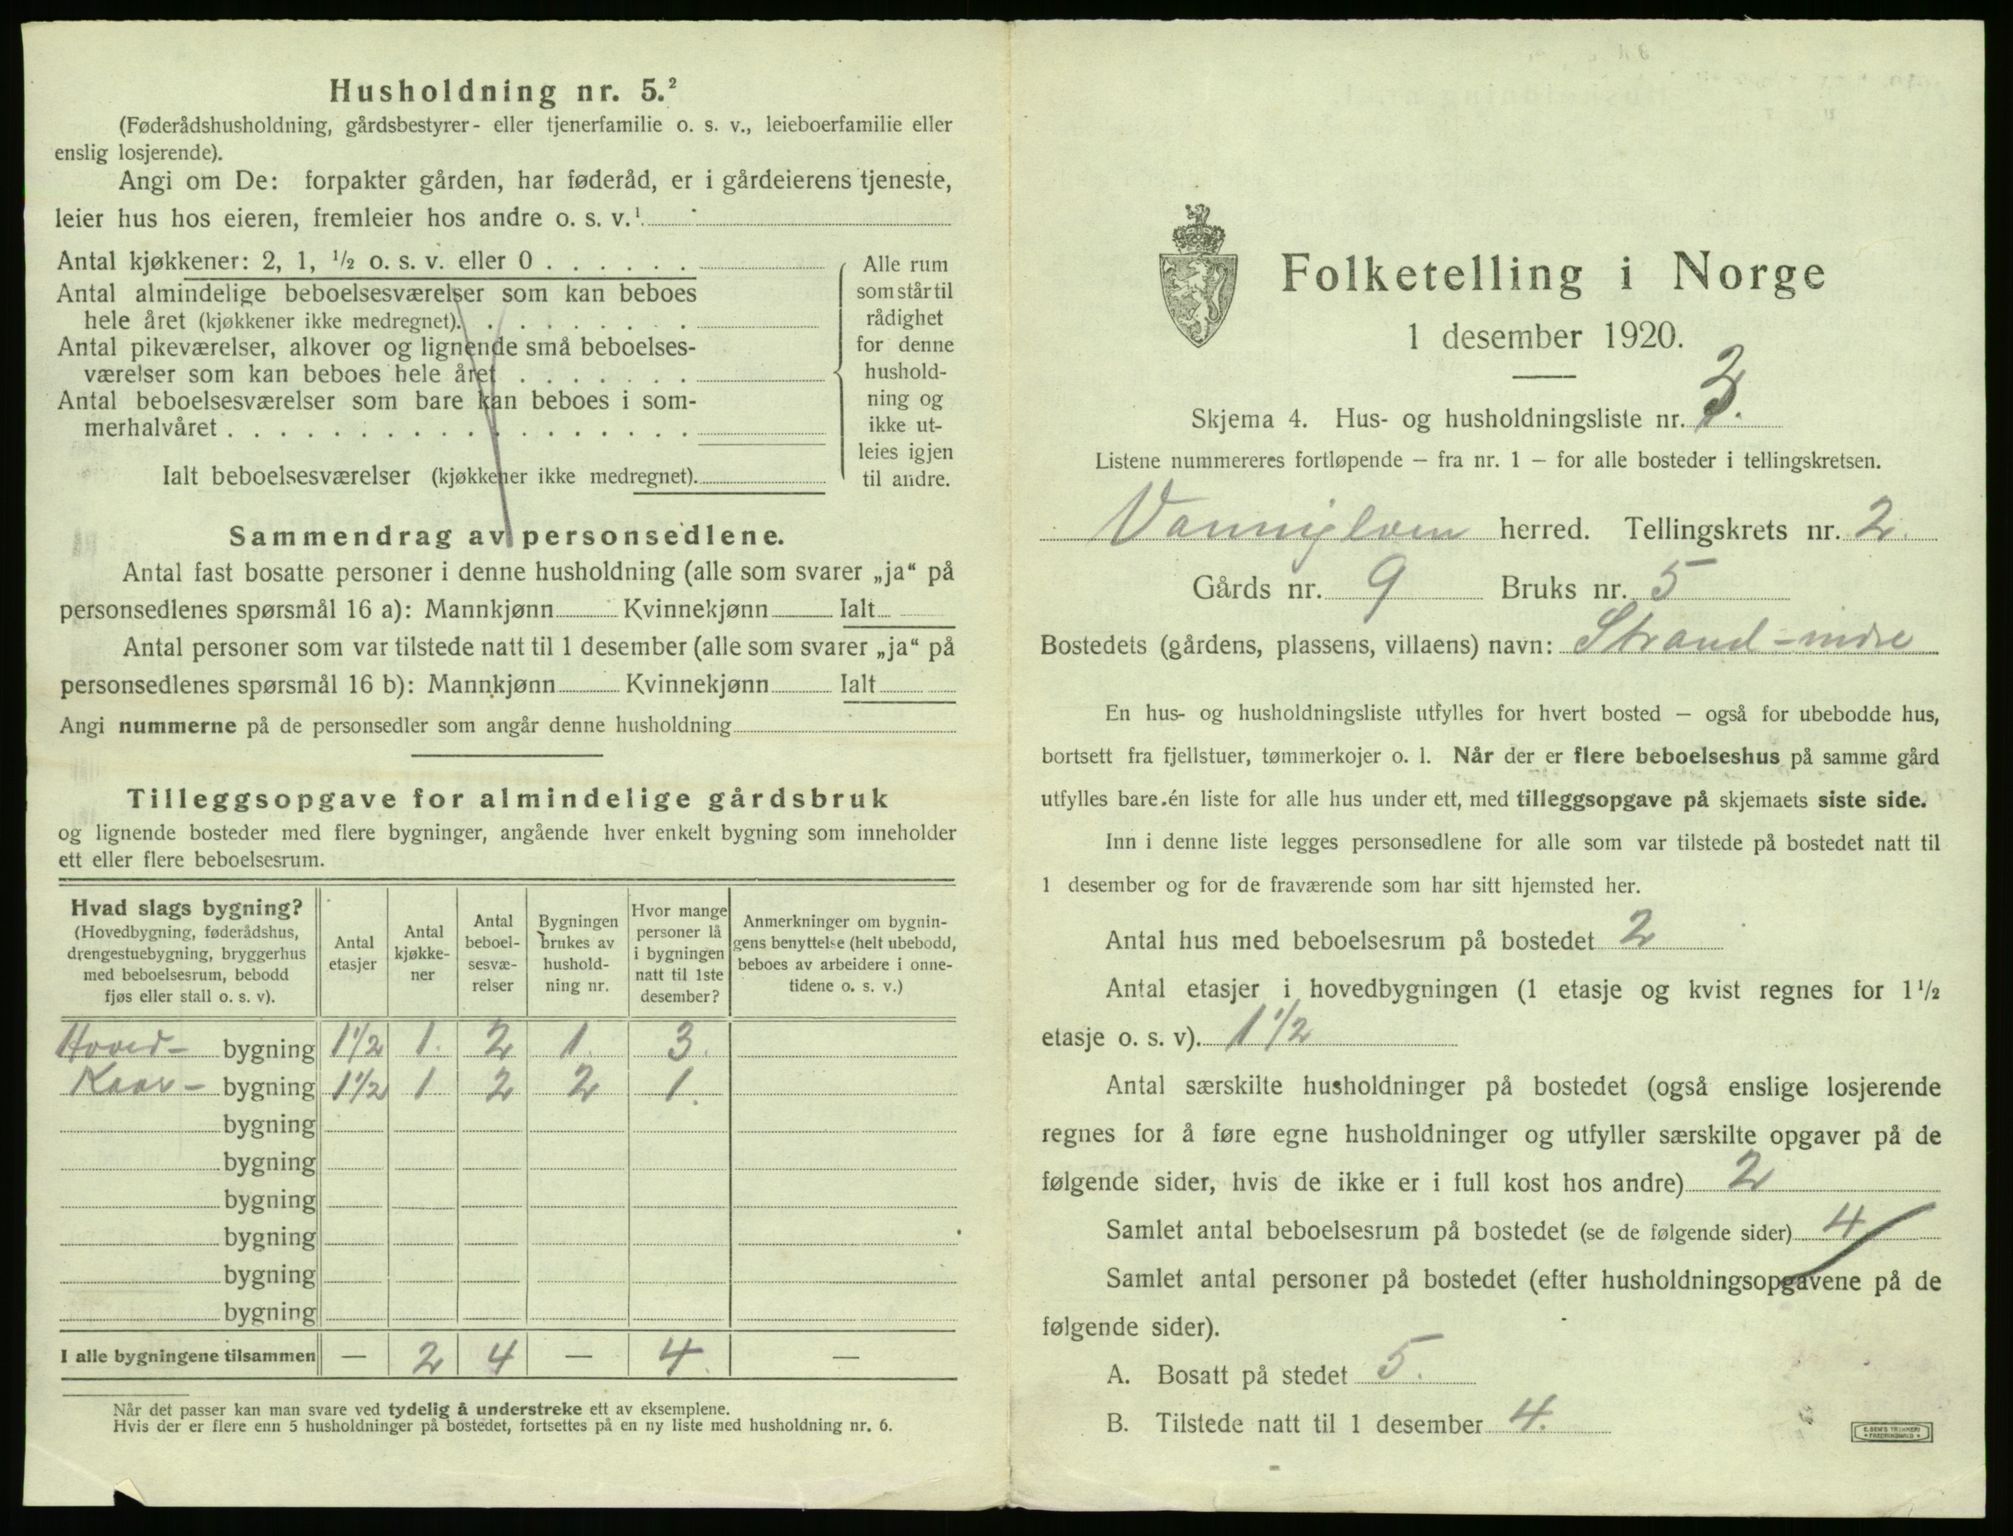 Husholdning nr. 5.²
(Føderådshusholdning, gårdsbestyrer- eller tjenerfamilie o. s. v., leieboerfamilie eller
enslig losjerende).
Angi om De: forpakter gården, har føderåd, er i gårdeierens tjeneste,
leier hus hos eieren, fremleier hos andre o. s. v.¹
Antal kjøkkener: 2, 1, ½ o. s. v. eller 0 . . . . . .
Antal almindelige beboelsesværelser som kan beboes
hele året (kjøkkener ikke medregnet). . . . . . . . .
Antal pikeværelser, alkover og lignende små beboelses-
værelser som kan beboes hele året . . . . . . .
Antal beboelsesværelser som bare kan beboes i som-
merhalvåret . . . . . . . . . . . . . . . . . .
Ialt beboelsesværelser (kjøkkener ikke medregnet).
Alle rum
som står til
rådighet
for denne
hushold-
ning og
ikke ut-
leies igjen
til andre.
Sammendrag av personsedlene.
Antal fast bosatte personer i denne husholdning (alle som svarer „ja“ på
personsedlenes spørsmål 16 a): Mannkjønn Kvinnekjønn Ialt
Antal personer som var tilstede natt til 1 desember (alle som svarer „ja“ på
personsedlenes spørsmål 16 b): Mannkjønn Kvinnekjønn Ialt
Angi nummerne på de personsedler som angår denne husholdning
Tilleggsopgave for almindelige gårdsbruk
og lignende bosteder med flere bygninger, angående hver enkelt bygning som inneholder
ett eller flere beboelsesrum.
Hvad slags bygning?
(Hovedbygning, føderådshus,
drengestuebygning, bryggerhus
med beboelsesrum, bebodd
fjøs eller stall o. s. v).
Antal
etasjer
Antal
kjøkke-
ner
Antal
beboel-
sesvæ-
relser
Bygningen
brukes av
hushold-
ning nr.
Hvor mange
personer lå
i bygningen
natt til 1ste
desember?
Anmerkninger om bygnin-
gens benyttelse (helt ubebodd,
beboes av arbeidere i onne-
tidene o. s. v.)
Hoved- bygning 1½ 1. 2 1. 3.
Kaar- bygning 1½ 1 2 2 1.
bygning
bygning
bygning
bygning
bygning
bygning
I alle bygningene tilsammen — 2 4 — 4. —
Når det passer kan man svare ved tydelig å understreke ett av eksemplene.
Hvis der er flere enn 5 husholdninger på bostedet, fortsettes på en ny liste med husholdning nr. 6.
Folketelling i Norge
1 desember 1920.
Skjema 4. Hus- og husholdningsliste nr. 3.
Listene nummereres fortløpende – fra nr. 1 – for alle bosteder i tellingskretsen.
herred. Tellingskrets nr. 2.
Gårds nr. 9 Bruks nr. 5
Bostedets (gårdens, plassens, villaens) navn: Strand-indre
En hus- og husholdningsliste utfylles for hvert bosted – også for ubebodde hus,
bortsett fra fjellstuer, tømmerkojer o. l. Når der er flere beboelseshus på samme gård
utfylles bare én liste for alle hus under ett, med tilleggsopgave på skjemaets siste side.
Inn i denne liste legges personsedlene for alle som var tilstede på bostedet natt til
1 desember og for de fraværende som har sitt hjemsted her.
Antal hus med beboelsesrum på bostedet 2
Antal etasjer i hovedbygningen (1 etasje og kvist regnes for 1½
etasje o. s. v). 1½
Antal særskilte husholdninger på bostedet (også enslige losjerende
regnes for å føre egne husholdninger og utfyller særskilte opgaver på de
følgende sider, hvis de ikke er i full kost hos andre) 2
Samlet antal beboelsesrum på bostedet (se de følgende sider) 4
Samlet antal personer på bostedet (efter husholdningsopgavene på de
følgende sider).
A. Bosatt på stedet 5.
B. Tilstede natt til 1 desember 4.